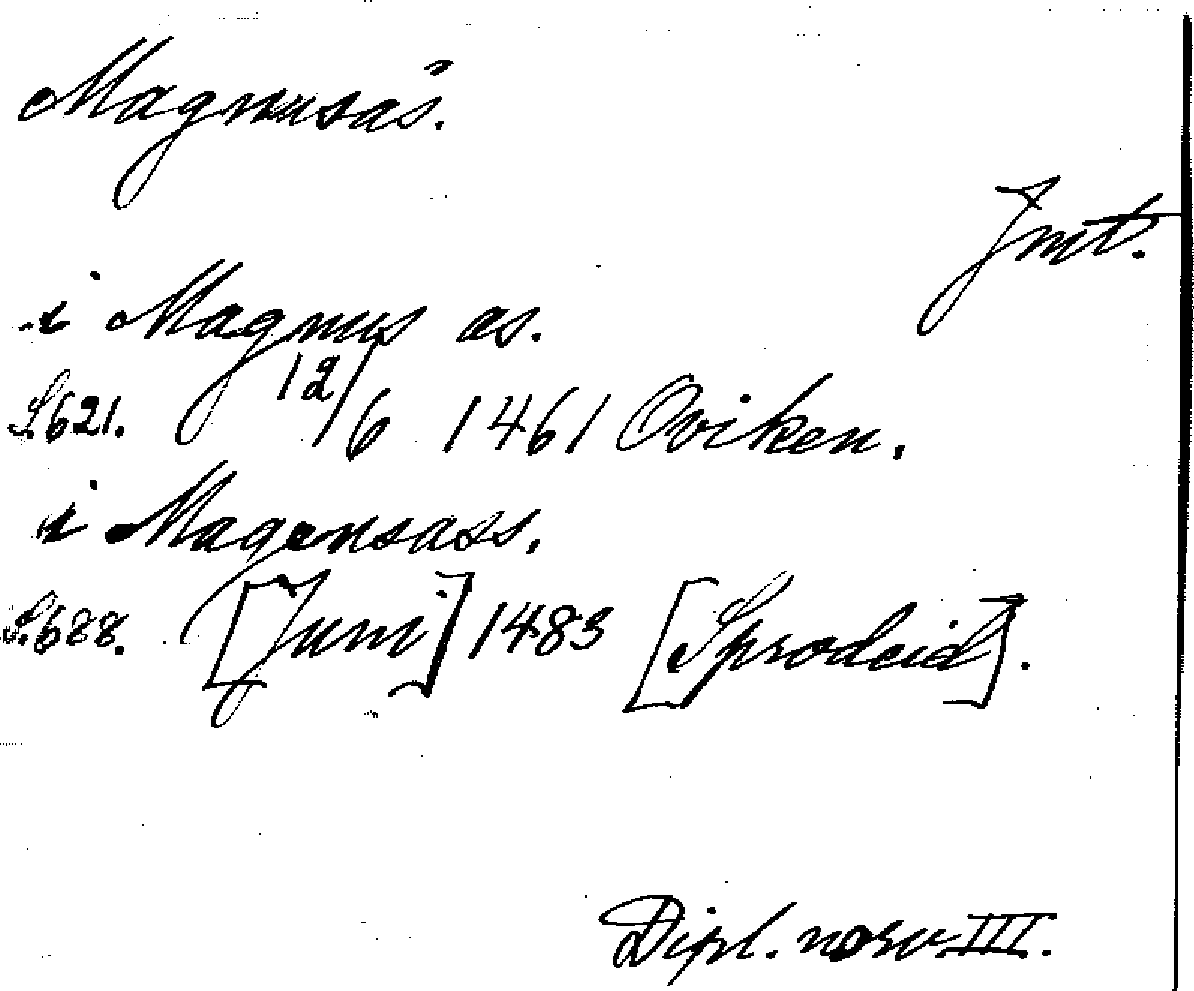 Magnusås.
Jmt.
i Magnus as.
S. 621. 12/6 1461 Oviken.
i Magensass.
S. 688. [Juni] 1483 [Sprodeid].
Dipl. norv III.